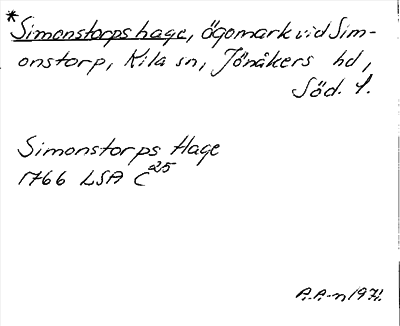 *Simonstorps hage, ögomark vid Sim-
onstorp, Kila sn, Jönåkers hd,
Söd. l.
Simonstorps Hage
1766 LSA C 25
A.A-n 1971.